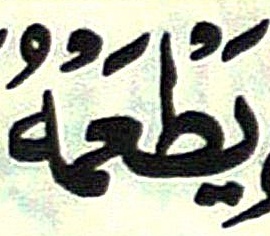 يَطْعَمُهُ